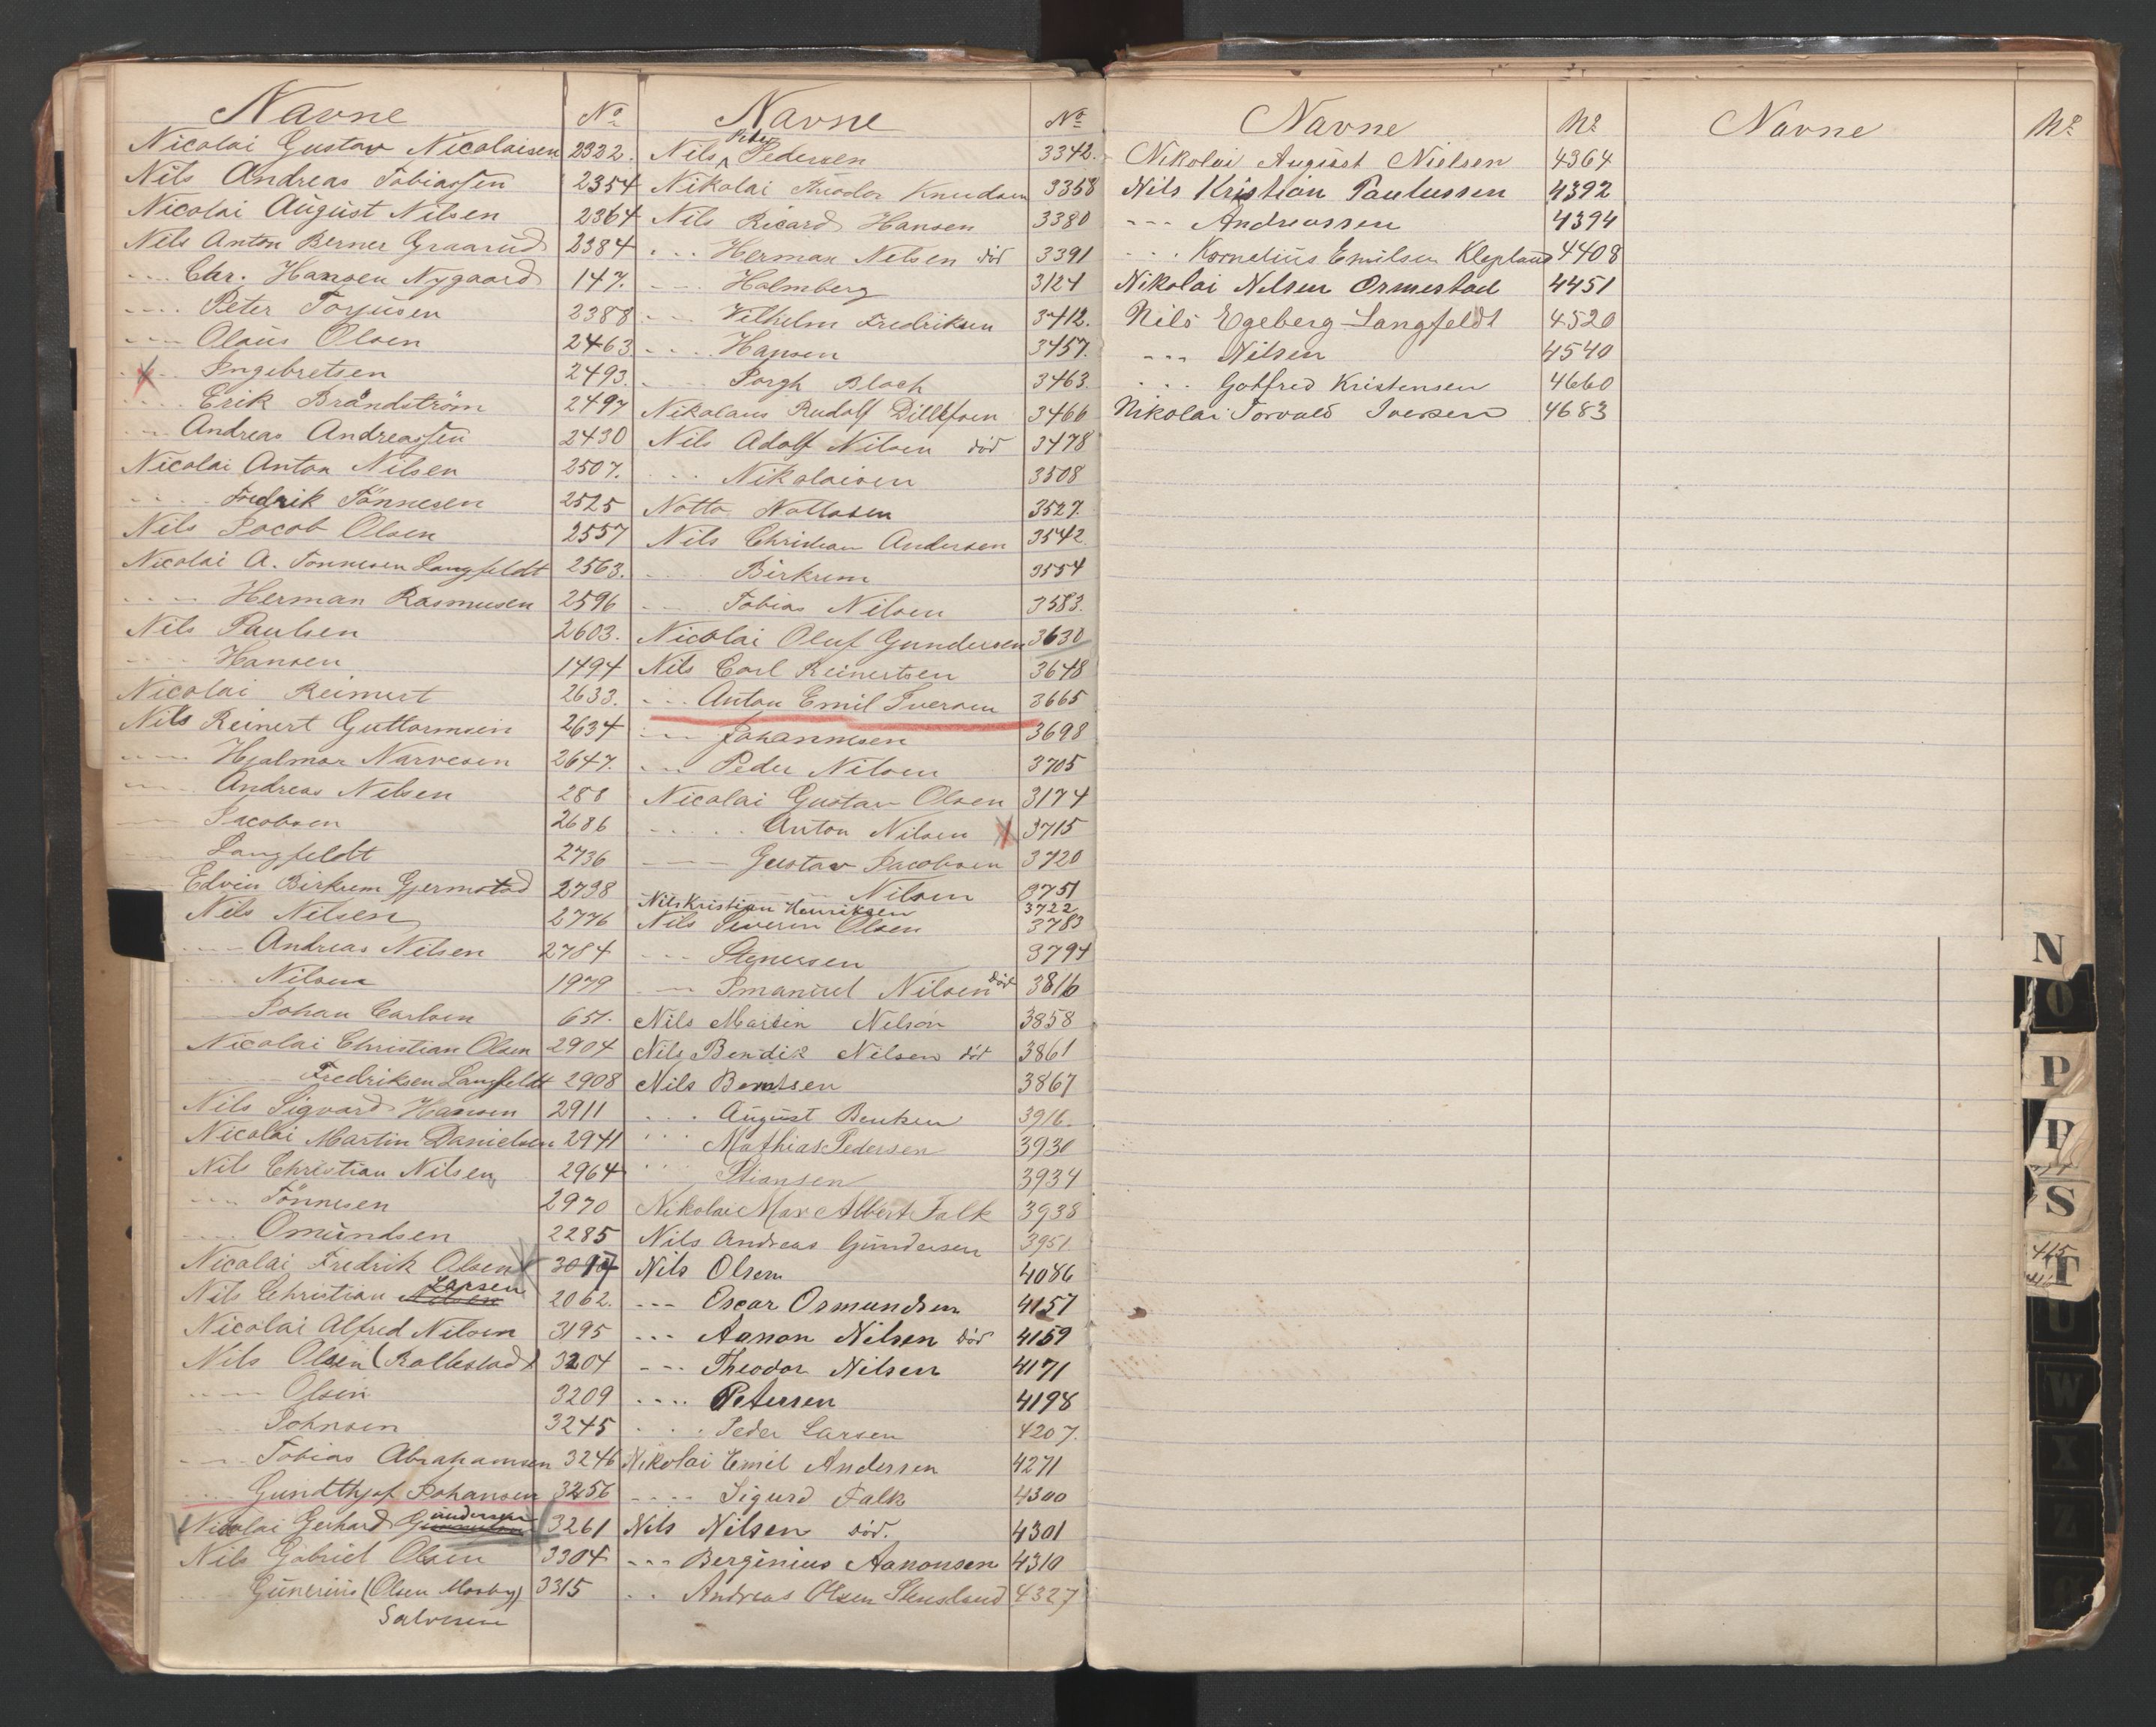 Navne No
Nicolai Gustav Nicolaisen 2322.
Nils Andreas Tobiassen 2354
Nicolai August Nilsen 2364
Nils Anton Berner Graarud 2384
---- Chr. Hansen Nygaard 147.
---- Peter Torjusen 2388
---- Olaus Olsen 2463
---- Ingebretsen 2493.
---- Erik Brandström 2497
---- Andreas Andreassen 2430
Nicolai Anton Nilsen 2507.
---- Fredrik Tönnesen 2525
Nils Jacob Olsen 2557
Nicolai A. Tönnesen Langfeldt 2563.
---- Herman Rasmusen 2596
Nils Paulsen 2603.
---- Hansen 1494
Nicolai Reimert 2633.
Nils Reinert Guttormsen 2634
---- Hjalmar Narvesen 2647.
---- Andreas Nilsen 288
---- Jacobsen 2686
---- Langfeldt 2736
Edvin Birkrem Gjermstad 2738
Nils Nilsen 2776
---- Andreas Nilsen 2784
---- Nilsen 1979
---- Johan Carlsen 651.
Nicolai Christian Olsen 2904
---- Fredriksen Langfeldt 2908
Nils Sigvard Hansen 2911
Nicolai Martin Danielsen 2941
Nils Christian Nilsen 2964
---- Tönnesen 2970
---- Omundsen 2285
Nicolai Fredrik Olsen
Nils Christian Nilsen Larsen 2062.
Nicolai Alfred Nilsen 3195
Nils Olsen (Rallestad) 3204
---- Olsen 3209
---- Johnsen 3245
---- Tobias Abrahamsen 3246
---- Gundthjof Johansen 3256
Nicolai Gerhard Gundersen 3261
Nils Gabriel Olsen 3304
Gunerius (Olsen Mosby) 3315
Salvesen
Navne No
Nils Peder Pedersen 3342.
Nikolai Theodor Knudsen 3358
Nils Ricard Hansen 3380
--- Herman Nilsen död 3391
--- Holmberg 3124
--- Vilhelm Fredriksen 3412.
--- Hansen 3457.
--- Borgh Bloch 3463.
Nikolaus Rudolf Dillefsen 3466
Nils Adolf Nilsen död 3478
--- Nikolaisen 3508
Notto Nottosen 3527.
Nils Christian Andersen 3542.
--- Birkrem 3554
--- Tobias Nilsen 3583.
Nicolai Oluf Gundersen 3630
Nils Carl Reinertsen 3648
--- Anton Emil Iversen 3665
--- Johannesen 3698
--- Peder Nilsen 3705
Nicolai Gustav Olsen 3174
--- Anton Nilsen 3715
--- Gustav Jacobsen 3720
--- Nilsen 3751
Nils Kristian Henriksen 3722
Nils Severin Olsen 3783
--- Stenersen 3794
--- Imanuel Nilsen död 3816
Nils Martin Nelson 3858
Nils Bendik Nilsen död 3861
Nils Berntsen 3867
--- August Bentsen 3916.
--- Mathias Pedersen 3930
--- Stiansen 3934
Nikolai Max Albert Falk 3938
Nils Andreas Gundersen 3951.
Nils Olsen 4086
--- Oscar Osmundsen 4157
--- Aanon Nilsen död 4159
--- Theodor Nilsen 4171
---- Petersen 4198
--- Peder Larsen 4207.
Nikolai Emil Andersen 4271
---- Sigurd Falk 4300
Nils Nilsen död. 4301
--- Berginius Aanonsen 4310
-- Andreas Olsen Stensland 4327
Navne No
Nikolai August Nielsen 4364
Nils Kristian Paulussen 4392
--- Andreassen 4394
--- Kornelius Emilsen Klepland 4408
Nikolai Nilsen Ormestad 4451
Nils Egeberg Langfeldt 4520
--- Nilsen 4540
--- Gotfred Kristensen 4660
Nikolai Torvald Iversen 4683
Navne No
N
O
P
P
S
T
U
W
X
Z